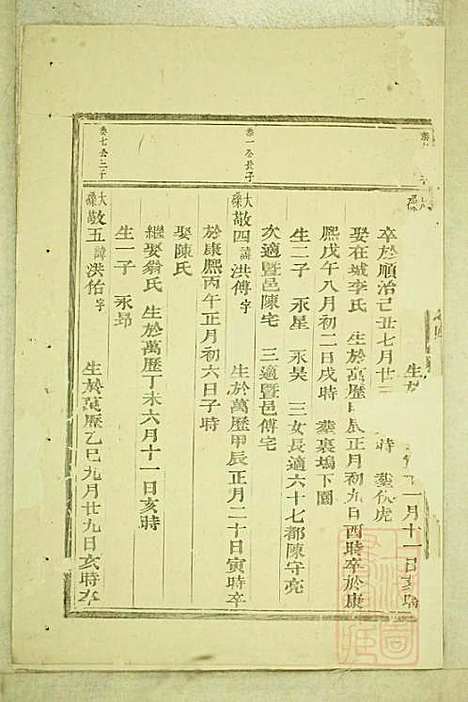 一月十一日亥時
卒於順治己丑七月廿三 時 葬伏虎
娶在城李氏 生於萬歷甲辰正月初九日酉時卒於康
熙戊午八月初二日戌時 葬裏塢下園
生二子 永星 永昊 三女長適六十七都陳守亮
次適暨邑陳宅 三適暨邑傅宅
大桑敬四諱洪傅字 生於萬歷甲辰正月二十日寅時卒
於康熙丙午正月初六日子時
娶陳氏
繼娶翁氏 生於萬歷丁未六月十一日亥時
生一子 永昂
大桑敬五諱洪佑字 生於萬歷乙巳九月廿九日亥時卒